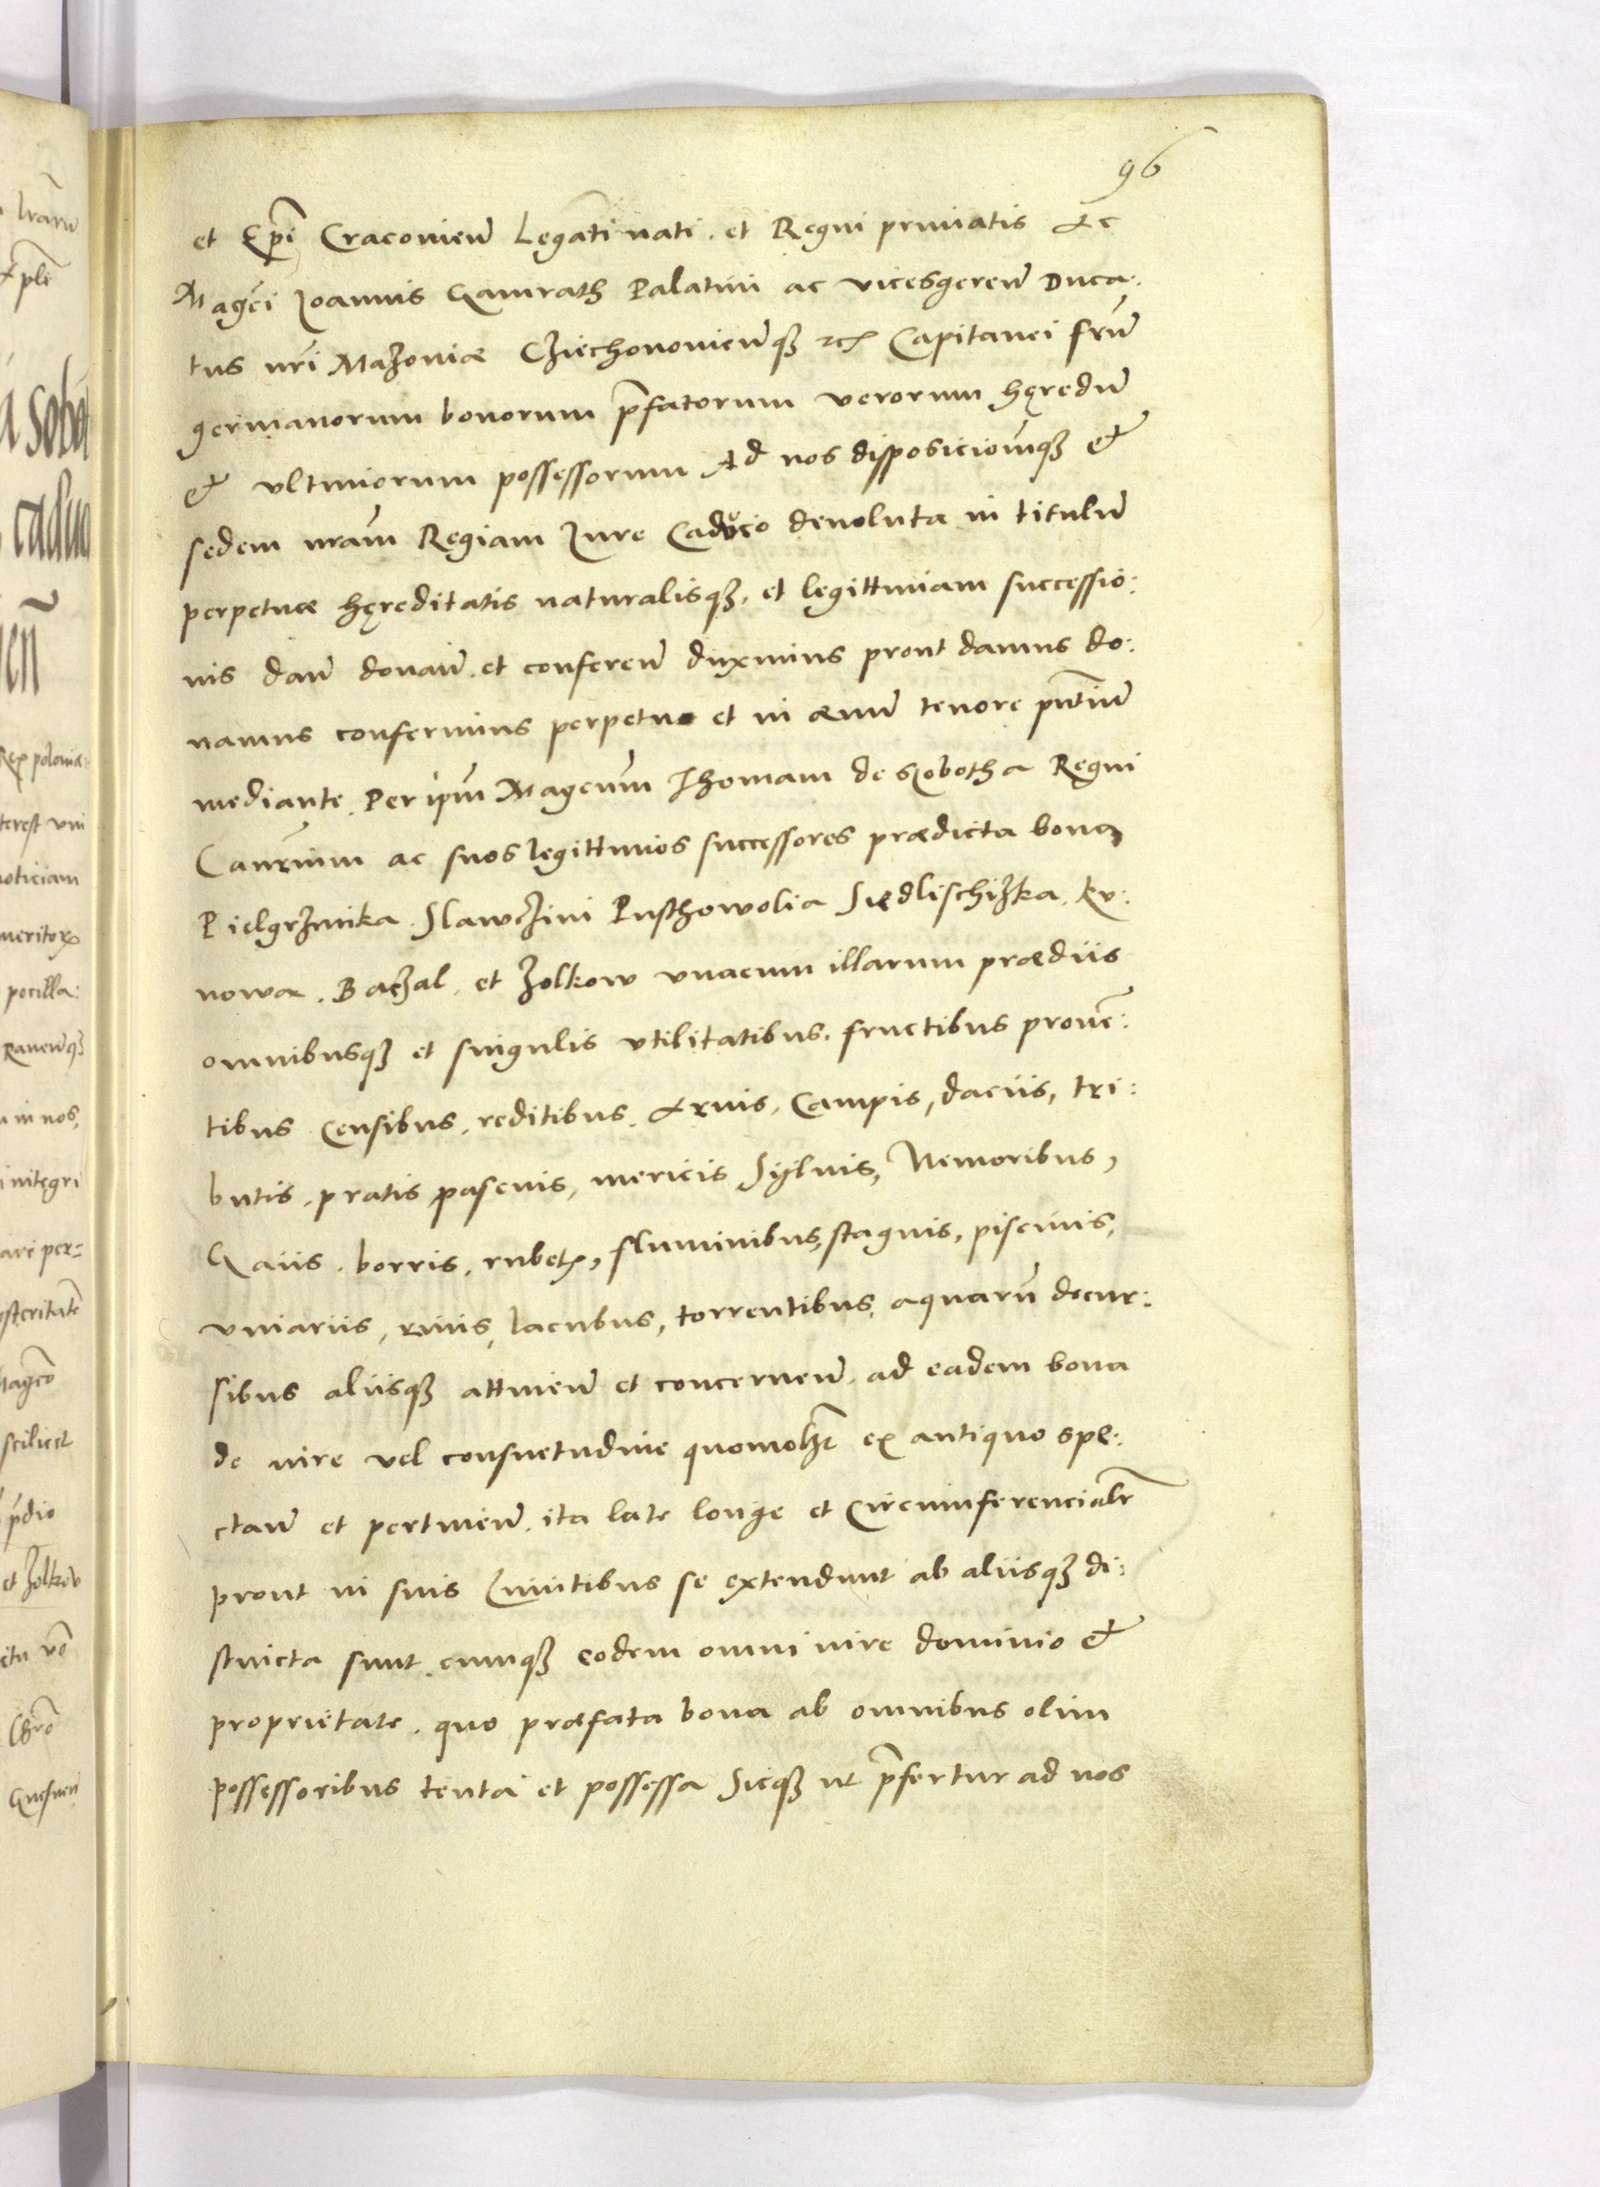 96
et Epi Cracovien Legati nati et Regni primatis Ac
Magci Ioannis Gamrath Palatini ac vicesgeren Duca:
tus nri Mazoviæ Cziechonovienqꝫ etc Capitanei frum
germanorum bonorum pfatorum verorum hęredum
et vltimorum possessorum Ad nos disposicionemqꝫ et
sedem nram Regiam Iure Caduco devoluta in titulum
perpetuæ hęreditatis naturalisqꝫ et legittimam successio:
nis dan donan et conferen duximus prout damus do:
namus conferimus perpetuo et in ævum tenore pntium
mediante Per ipm Magcum Thomam de Sobotha Regni
Canrium ac suos legittimos successores prædicta bona
Pielgrzimka Slawczini Pusthowolia Siedlischizka Ku:
nowa Baczal et Zolkow vnacum illarum prædiis
omnibusqꝫ et singulis vtilitatibus fructibus proven:
tibus Censibus reditibus Aruis, Campis, daciis, tri:
butis pratis pascuis, mericis Syluis, Nemoribus,
Gaiis borris rubetis, fluminibus, stagnis, piscinis,
viuariis, riuis, lacubus, torrentibus, aquarum decur:
sibus aliisqꝫ attinen et concernen ad eadem bona
de iure vel consuetudine quomolibet ex antiquo spe:
ctan et pertinen ita late longe et Circumferencialr
prout in suis limitibus se extendunt ab aliisqꝫ di:
stincta sunt cumqꝫ eodem omni iure dominio et
proprietate quo præfata bona ab omnibus olim
possessoribus tenta et possessa Sicqꝫ ut pfertur ad nos